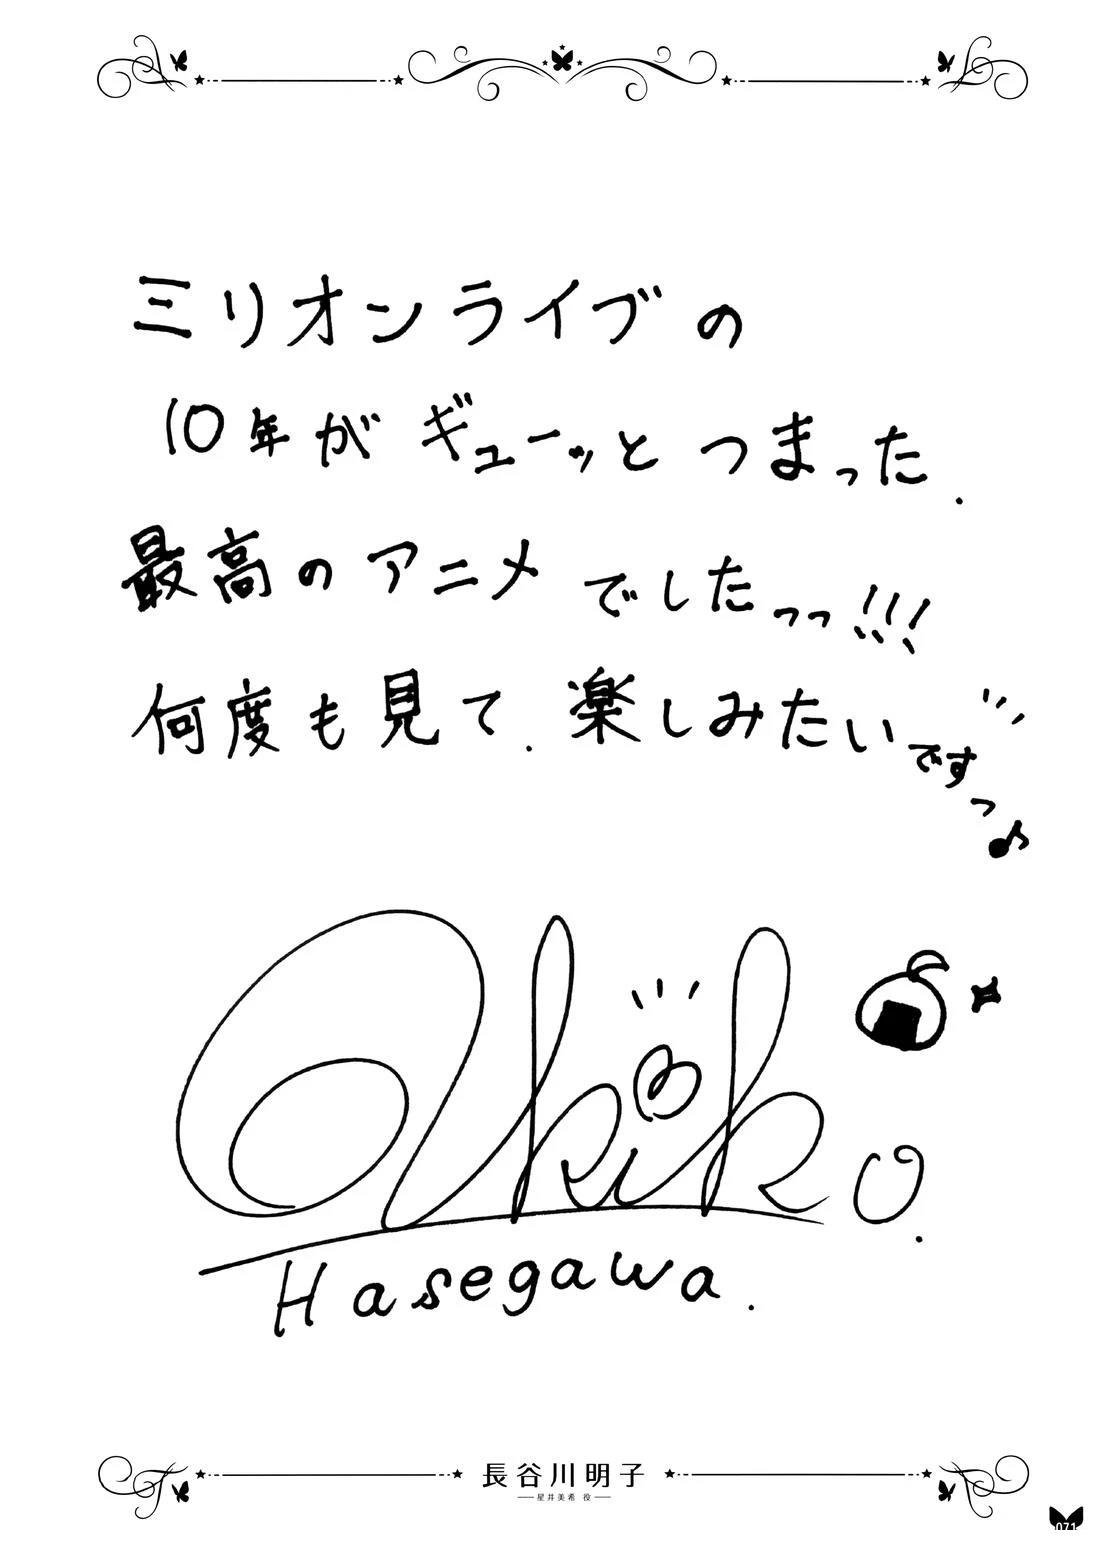 ミリオンライブの
10年がギューッとつまった.
最高のアニメでしたっっ!!!
何度も見て.楽しみたいですっ♪
Akiko.
Hasegawa.
長谷川明子
星井美希 役
071